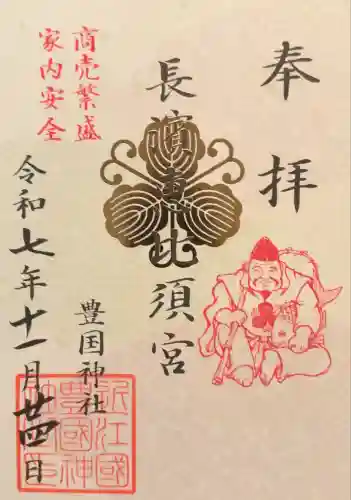 奉拝
長濵恵比須宮
商売繁盛
家内安全
豊国神社
令和七年十一月廿四日
近江國
豊國神